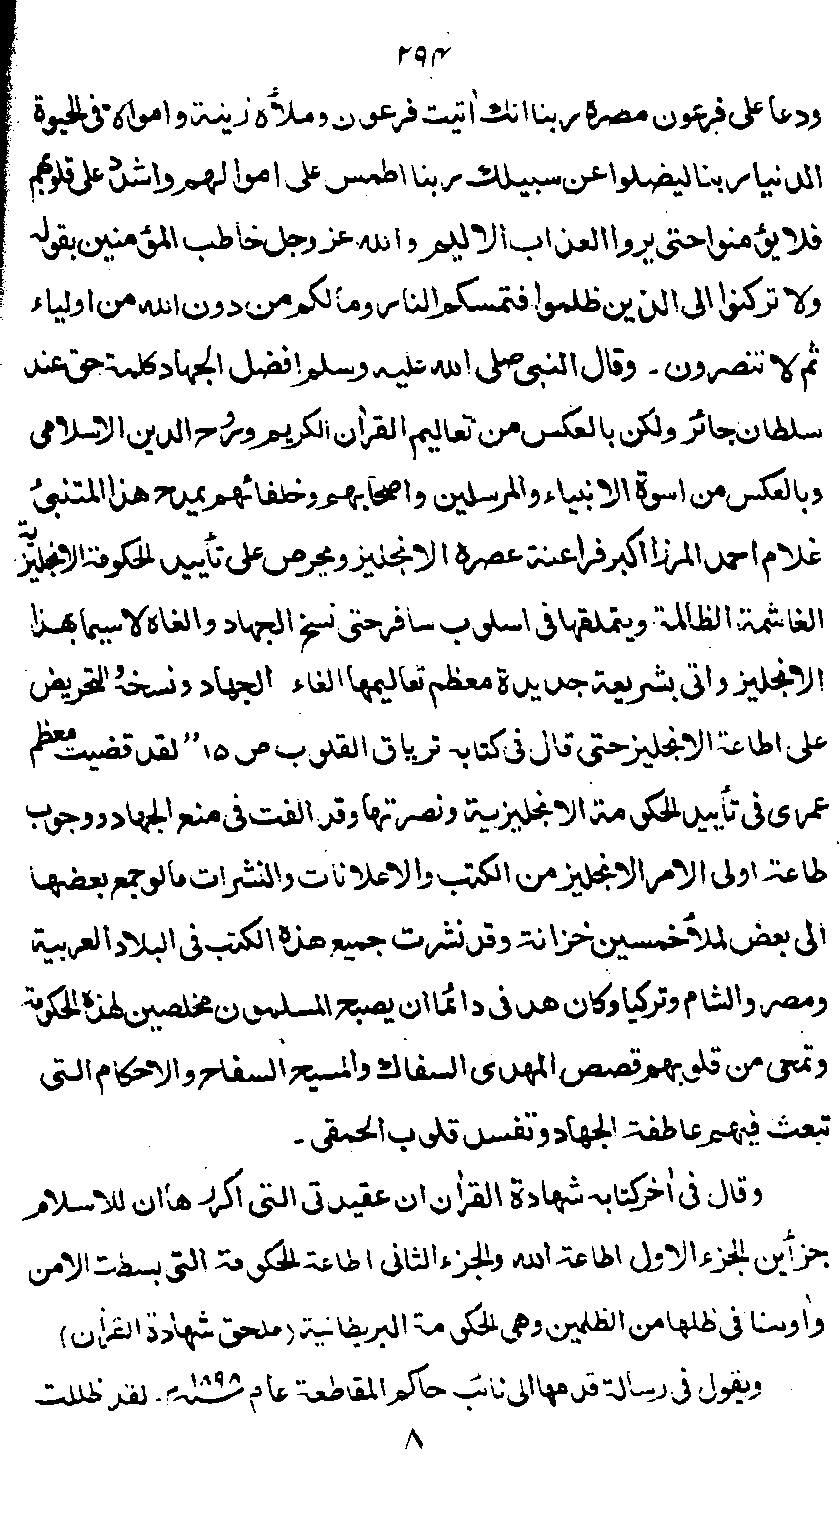 ۲۹۴
ودعا على فرعون مصره ربنا انك اٰتيت فرعون وملأه زينة واموالا في الحيوة
الدنيا ربنا ليضلوا عن سبيلك ربنا اطمس على اموالهم واشدد على قلوبهم
فلا يؤمنوا حتى يروا العذاب الاليم والله عز وجل خاطب المؤمنين بقوله
ولا تركنوا الى الذين ظلموا فتمسكم النار ومالكم من دون الله من اولياء
ثم لا تنصرون ـ وقال النبي صلى الله عليه وسلم افضل الجهاد كلمة حق عند
سلطان جائر ولكن بالعكس من تعاليم القراٰن الكريم وروح الدين الاسلامي
وبالعكس من اسوة الانبياء والمرسلين واصحابهم وخلفائهم يمدح هذا المتنبئ
غلام احمد المرزا اكبر فراعنة عصره الانجليز ويحرص على تأييد الحكومة الانجليزية
الغاشمة الظالمة ويتملقها في اسلوب سافر حتى نسخ الجهاد والغاه لاسيما بهذا
الانجليز واتى بشريعة جديدة معظم تعاليمها الغاء الجهاد ونسخهُ والتحريض
على اطاعة الانجليز حتى قال في كتابه ترياق القلوب ص ۱۵ "لقد قضيت معظم
عمرى في تأييد الحكومة الانجليزية ونصرتها وقد الفت في منع الجهاد ووجوب
طاعة اولى الامر الانجليز من الكتب والاعلانات والنشرات مالو جمع بعضها
الى بعض لملأ خمسين خزانة وقد نشرت جميع هذه الكتب في البلاد العربية
ومصر والشام وتركيا وكان هدفى دائما ان يصبح المسلمون مخلصين لهذه الحكومة
وتمحى من قلوبهم قصص المهدى السفاك والمسيح السفاح والاحكام التى
تبعث فيهم عاطفة الجهاد وتفسد قلوب الحمقى ـ
وقال في اٰخر كتابه شهادة القراٰن ان عقيدتى التى اكررها ان للاسلام
جزأين الجزء الاول اطاعة الله والجزء الثانى اطاعة الحكومة التى بسطت الامن
واٰوتنا في ظلها من الظلمين وهى الحكومة البريطانية (ملحق شهادة القراٰن)
ويقول في رسالة قدمها الى نائب حاكم المقاطعة عام ۱۸۹۸ سنة ء ـ لقد ظللت
۸